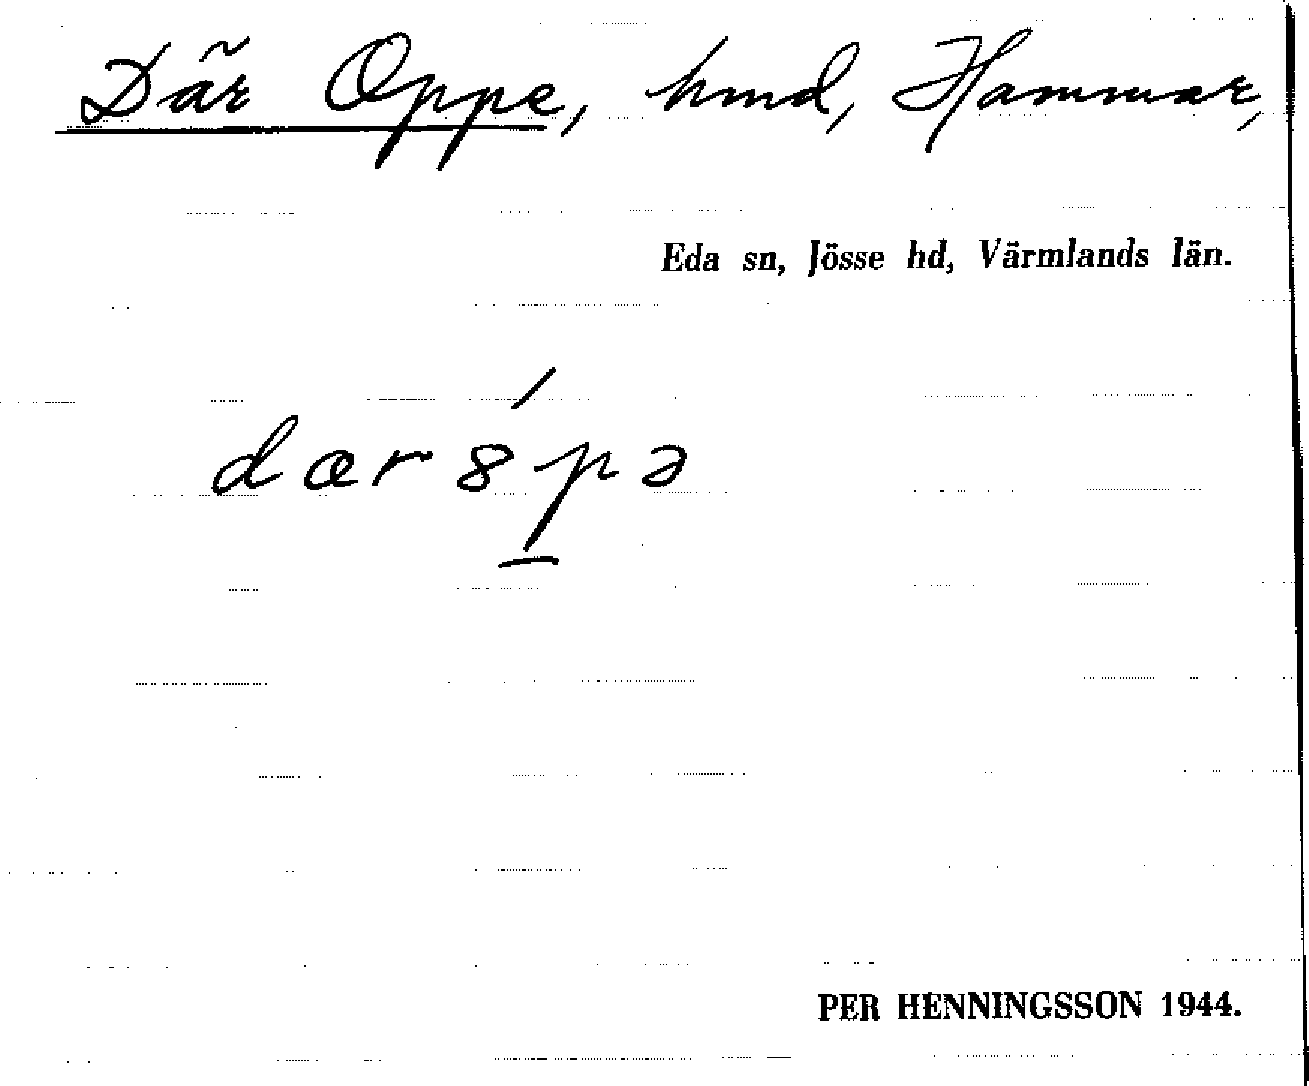 Där Oppe, hmd, Hammar,
Eda sn, Jösse hd, Värmlands län.
dær 8́p̲ə
PER HENNINGSSON 1944.